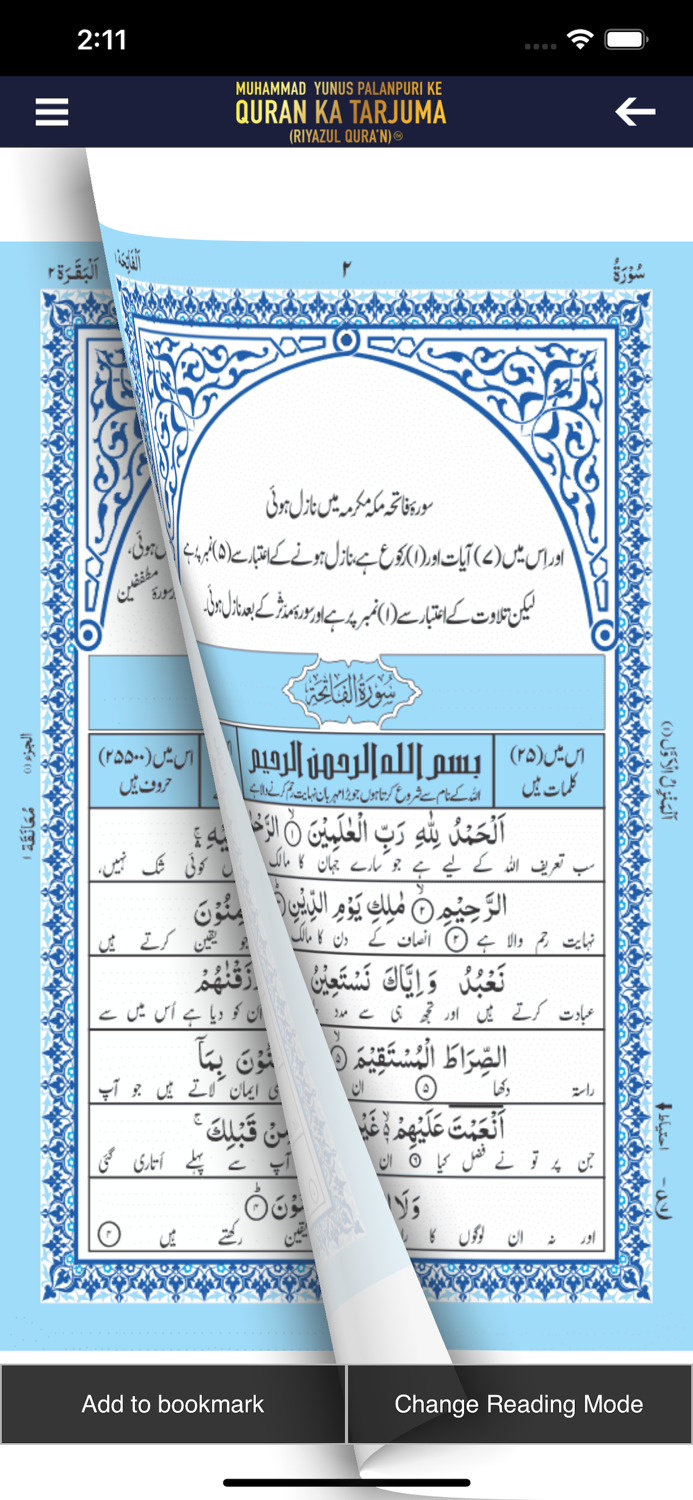 2:11
MUHAMMAD YUNUS PALANPURI KE
QURAN KA TARJUMA
(RIYAZUL QURA'N)
اَلْبَقَرَة ٢
اَلْفَاتِحَة ١
٢
سُوْرَةُ
سورۂ فاتحہ مکہ مکرمہ میں نازل ہوئی
اور اِس میں (۷) آیات اور (۱) رکوع ہے، نازل ہونے کے اعتبار سے (۵) نمبر پر ہے
لیکن تلاوت کے اعتبار سے (۱) نمبر پر ہے اور سورۂ مدثر کے بعد نازل ہوئی۔
ہوئی،
سورۂ مطففین
سُوْرَةُ الْفَاتِحَةِ
اس میں (۲۵) کلمات ہیں
بسم الله الرحمن الرحيم
اللہ کے نام سے شروع کرتا ہوں جو بڑا مہربان نہایت رحم کرنے والا ہے
اس میں (۲۵۵۰۰) حروف ہیں
اَلْحَمْدُ لِلّٰهِ رَبِّ الْعٰلَمِيْنَ ١ الرَّحْ
سب تعریف اللہ کے لیے ہے جو سارے جہان کا مالک
کوئی شک نہیں،
الرَّحِيْمِ ٢ مٰلِكِ يَوْمِ الدِّيْنِ
نہایت رحم والا ہے ٢ انصاف کے دن کا مالک
جو یقین کرتے ہیں
نَعْبُدُ وَاِيَّاكَ نَسْتَعِيْنُ
زَقْنٰهُمْ
عبادت کرتے ہیں اور تجھ ہی سے مدد
ان کو دیا ہے اُس میں سے
الصِّرَاطَ الْمُسْتَقِيْمَ ٥
نُوْنَ بِمَآ
راستہ دکھا ٥ ان
ایمان لاتے ہیں جو آپ
اَنْعَمْتَ عَلَيْهِمْ غَيْ
مِنْ قَبْلِكَ
جن پر تو نے فضل کیا ٦ ان
آپ سے پہلے اُتاری گئی
وَلَا
نُوْنَ ٤
اور نہ ان لوگوں کا
یقین رکھتے ہیں ٤
اَلْمَنْزِلُ الْاَوَّل (١)
الجزء (١)
مُعَانَقَة ١
احتیاط
Add to bookmark
Change Reading Mode